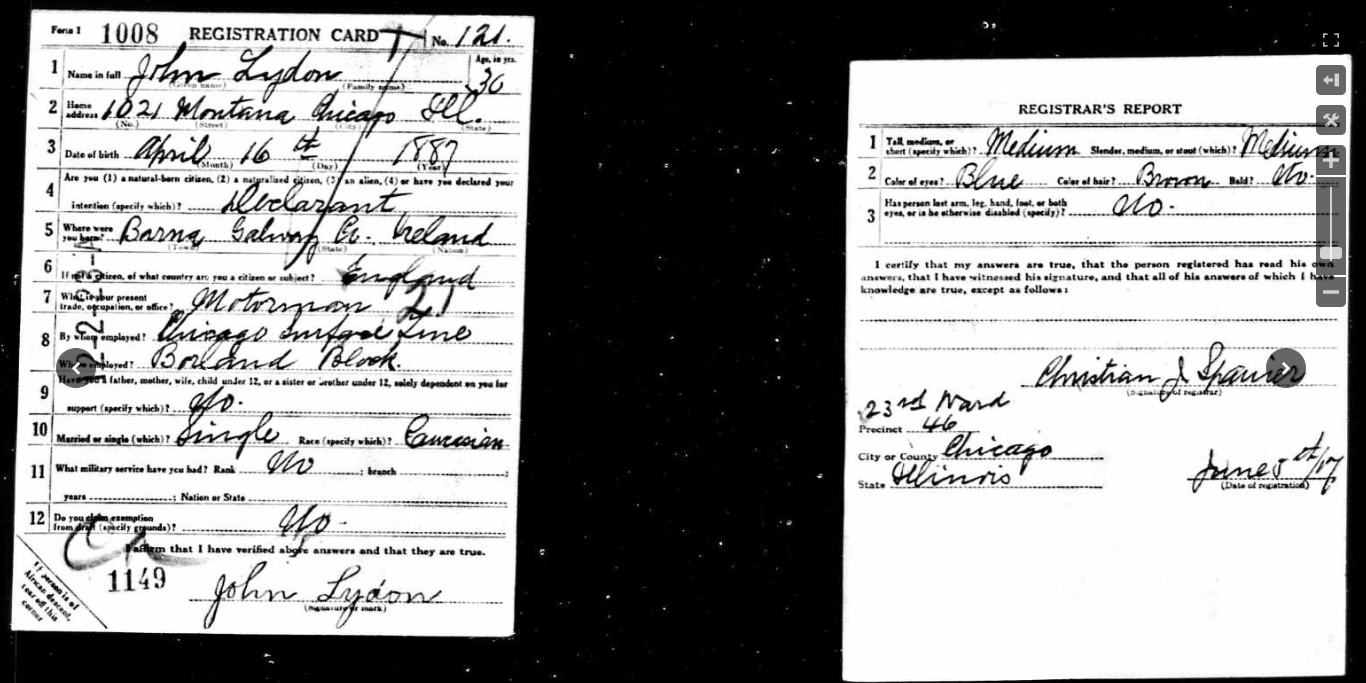 Form 1 1008 REGISTRATION CARD No. 121.
1 Name in full John Lydon Age, in yrs. 30
(Given name) (Family name)
2 Home address 1021 Montana Chicago Ill.
(No.) (Street) (City) (State)
3 Date of birth April 16 th 1887
(Month) (Day) (Year)
Are you (1) a natural-born citizen, (2) a naturalized citizen, (3) an alien, (4) or have you declared your
4 intention (specify which)? Declarant
5 Where were you born? Barna Galway Co. Ireland
(Town) (State) (Nation)
6 If not a citizen, of what country are you a citizen or subject? England
7 What is your present trade, occupation, or office? Motorman 21
8 By whom employed? Chicago Surface Line
Where employed? Borland Block.
9 Have you a father, mother, wife, child under 12, or a sister or brother under 12, solely dependent on you for
support (specify which)? No.
10 Married or single (which)? Single Race (specify which)? Caucasian
11 What military service have you had? Rank No ; branch ;
years ; Nation or State
12 Do you claim exemption from draft (specify grounds)? No.
I affirm that I have verified above answers and that they are true.
1149
John Lydon
(Signature or mark)
If person is of
African descent,
tear off this
corner
REGISTRAR'S REPORT
1 Tall, medium, or short (specify which)? Medium Slender, medium, or stout (which)? Medium
2 Color of eyes? Blue Color of hair? Brown Bald? No.
3 Has person lost arm, leg, hand, foot, or both eyes, or is he otherwise disabled (specify)? No.
I certify that my answers are true, that the person registered has read his own
answers, that I have witnessed his signature, and that all of his answers of which I have
knowledge are true, except as follows:
Christian J. Spanier
(Signature of registrar)
23rd Ward
Precinct 46
City or County Chicago
State Illinois
June 5th/17
(Date of registration)